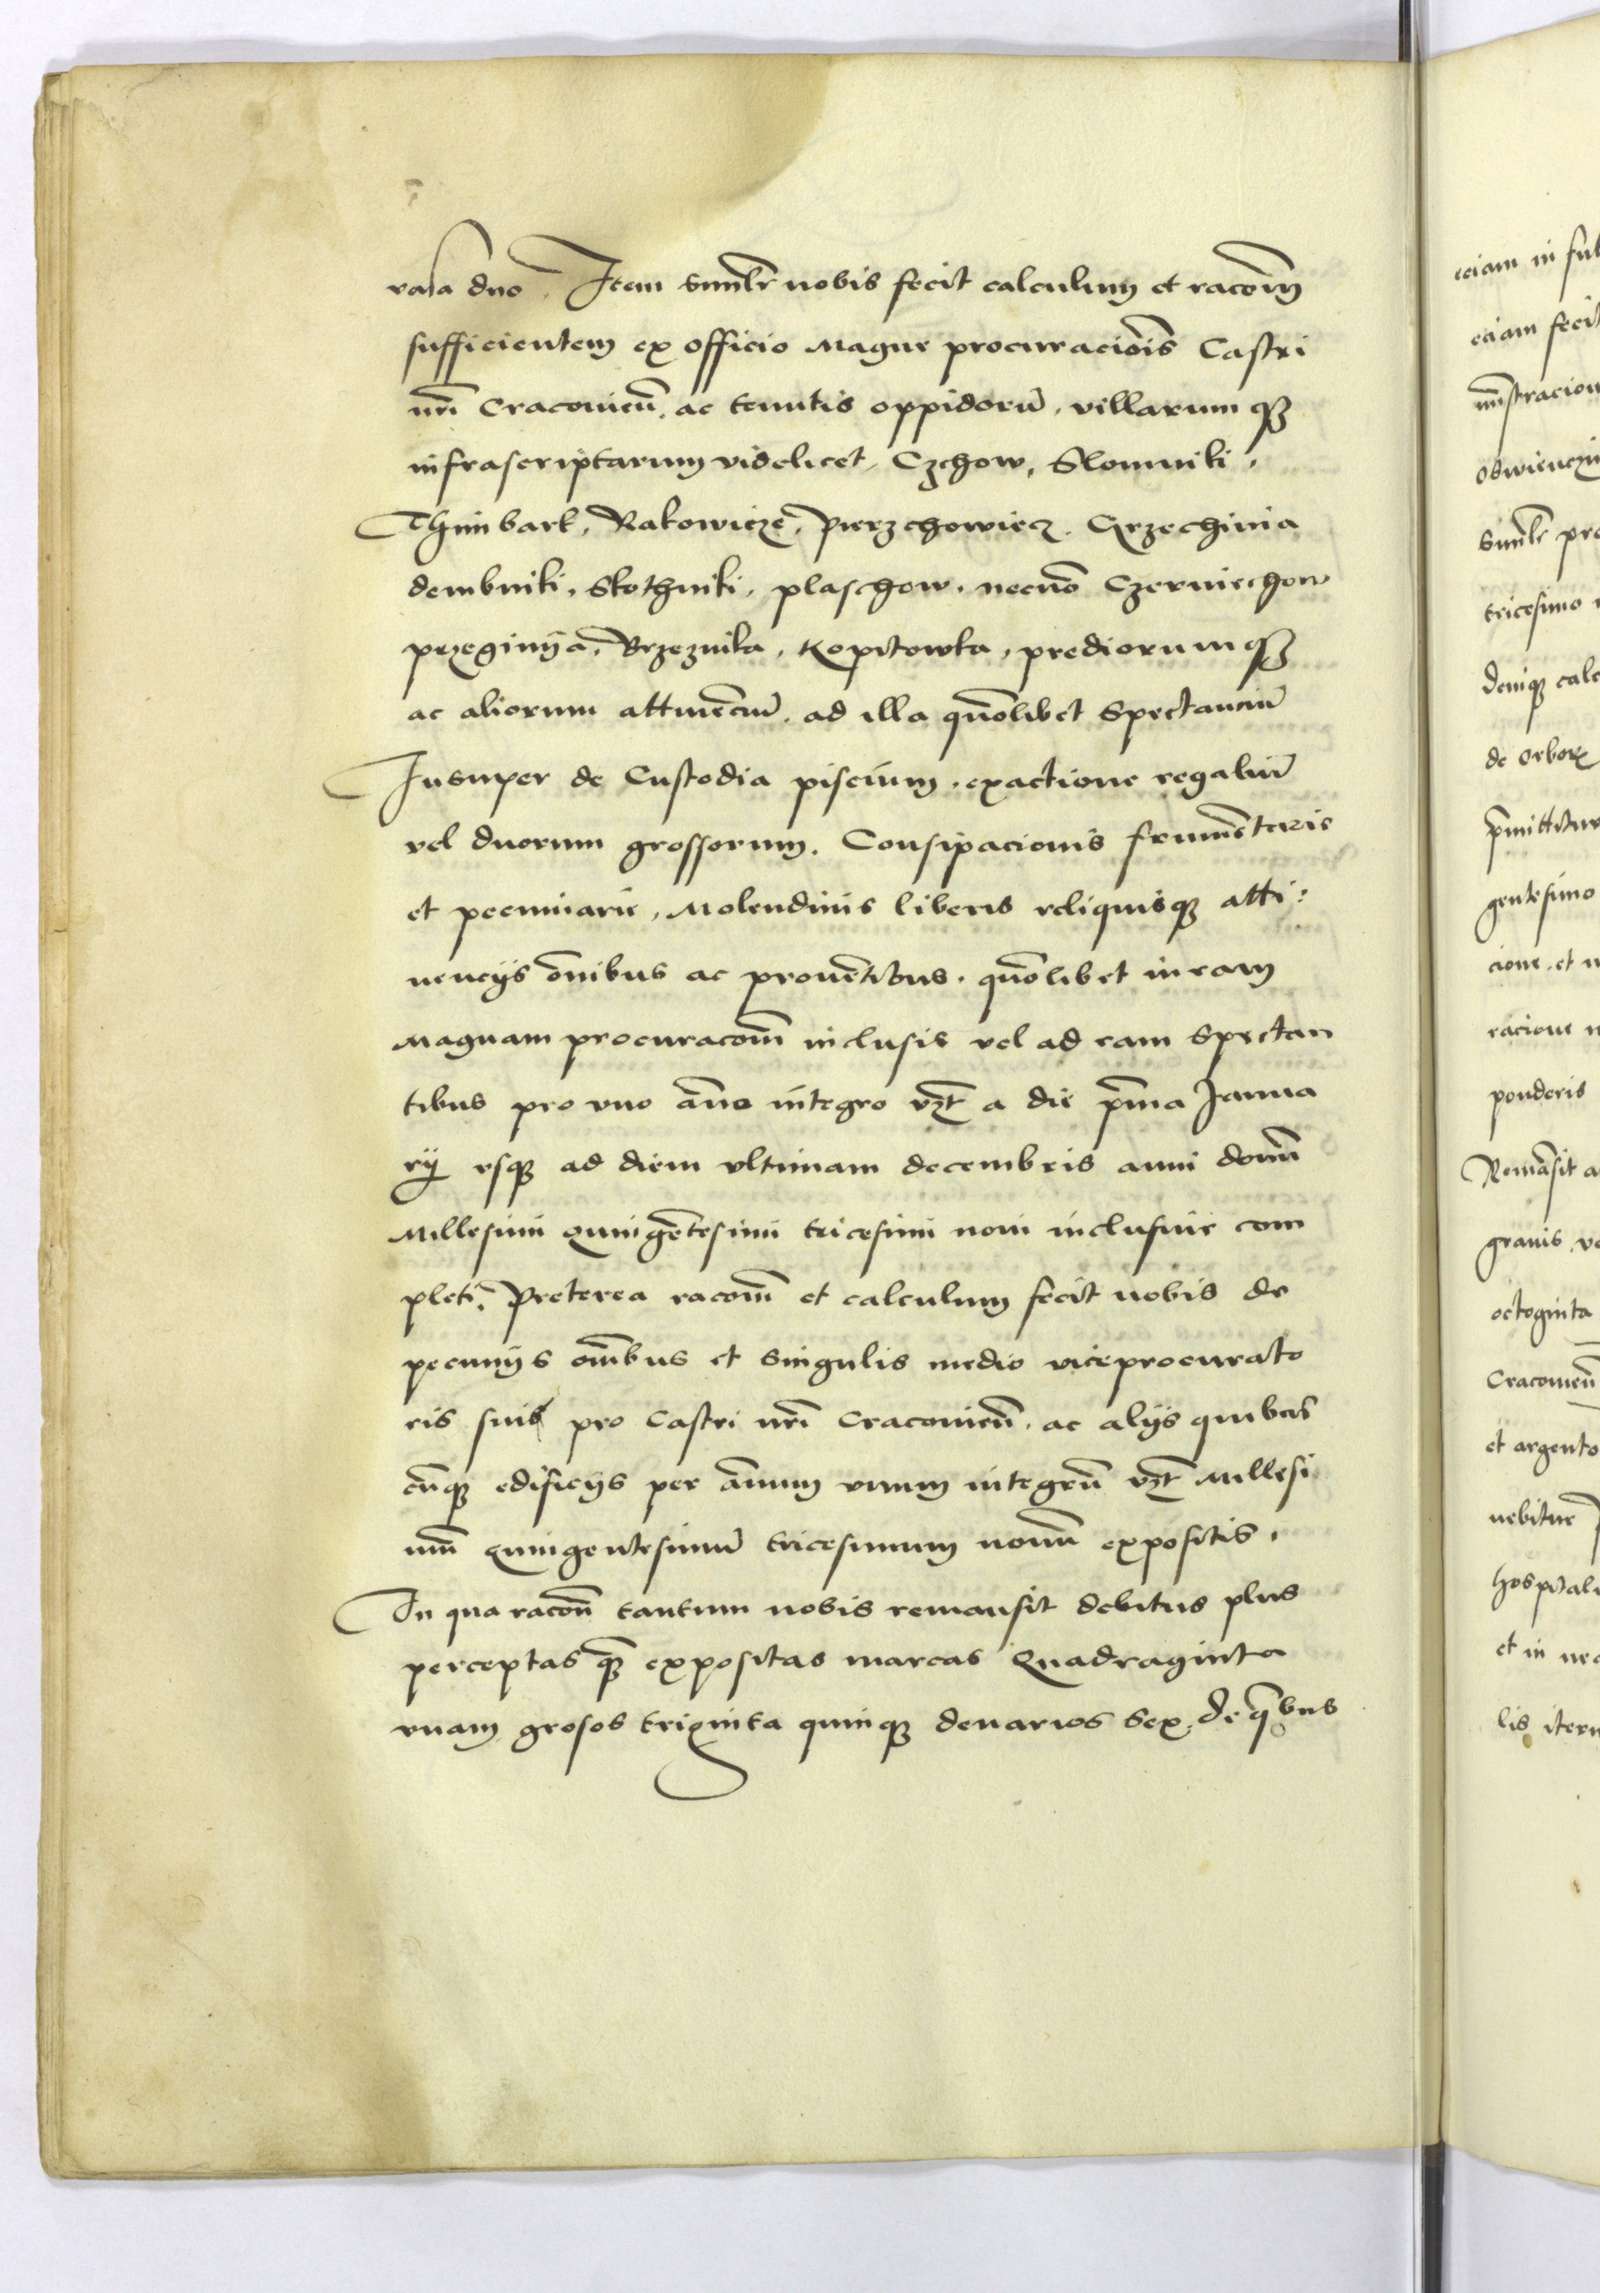 vasa duo. Item simlr nobis fecit calculum et racom̄
sufficientem ex officio Magne procuraciois Castri
nri Cracovien̄. ac tenutis oppidorū. villarumq
infrascriptarum videlicet, Czchow, Slomniki,
Thimbark, Rakowicze, Pierzchowiecz. Grzechinia
dembniki, Skothniki, plaschow, necnō Czerniechow
przeginija, Brzeznika, Kopitowka, prediorumq
ac aliorum attinenciū. ad illa quōlibet Spectanciū
Insuper de Custodia piscium. exactione regaliū
vel duorum grossorum. Consipacionis frumētarie
et pecuniarie, Molendinis liberis reliquisq atti:
nencijs ōnibus ac provētibus. quōlibet in eam
Magnam procuracom̄ inclusis vel ad eam Spectan
tibus pro vno āno integro vzt a die pma Janua
rij vsq ad diem vltimam decembris anni domī
Millesimi quingētesimi tricesimi noni inclusive com
pleti. Preterea racom̄ et calculum fecit nobis de
pecunijs omībus et singulis medio viceprocurato
ris sui pro Castri nri Cracovien̄. ac alijs quibus
cūq edificijs per ānum vnum integrū vzt Millesi
mū quingentesimū tricesimum nonū expositis.
In qua racōn tantum nobis remansit debitus plus
perceptas q expositas marcas Quadraginta
vnam grosos triginta quinq denarios sex. de qbus
eciam in
eciam fecit
nistracion
simlr pro
tricesimo
deniq calc
pmittitur
gentesimo
cione. et
racione
ponderis
Remāsit a
gravis
octoginta
Cracovien̄
et argento
nebitur
hospitali
et in nec
lis iteru